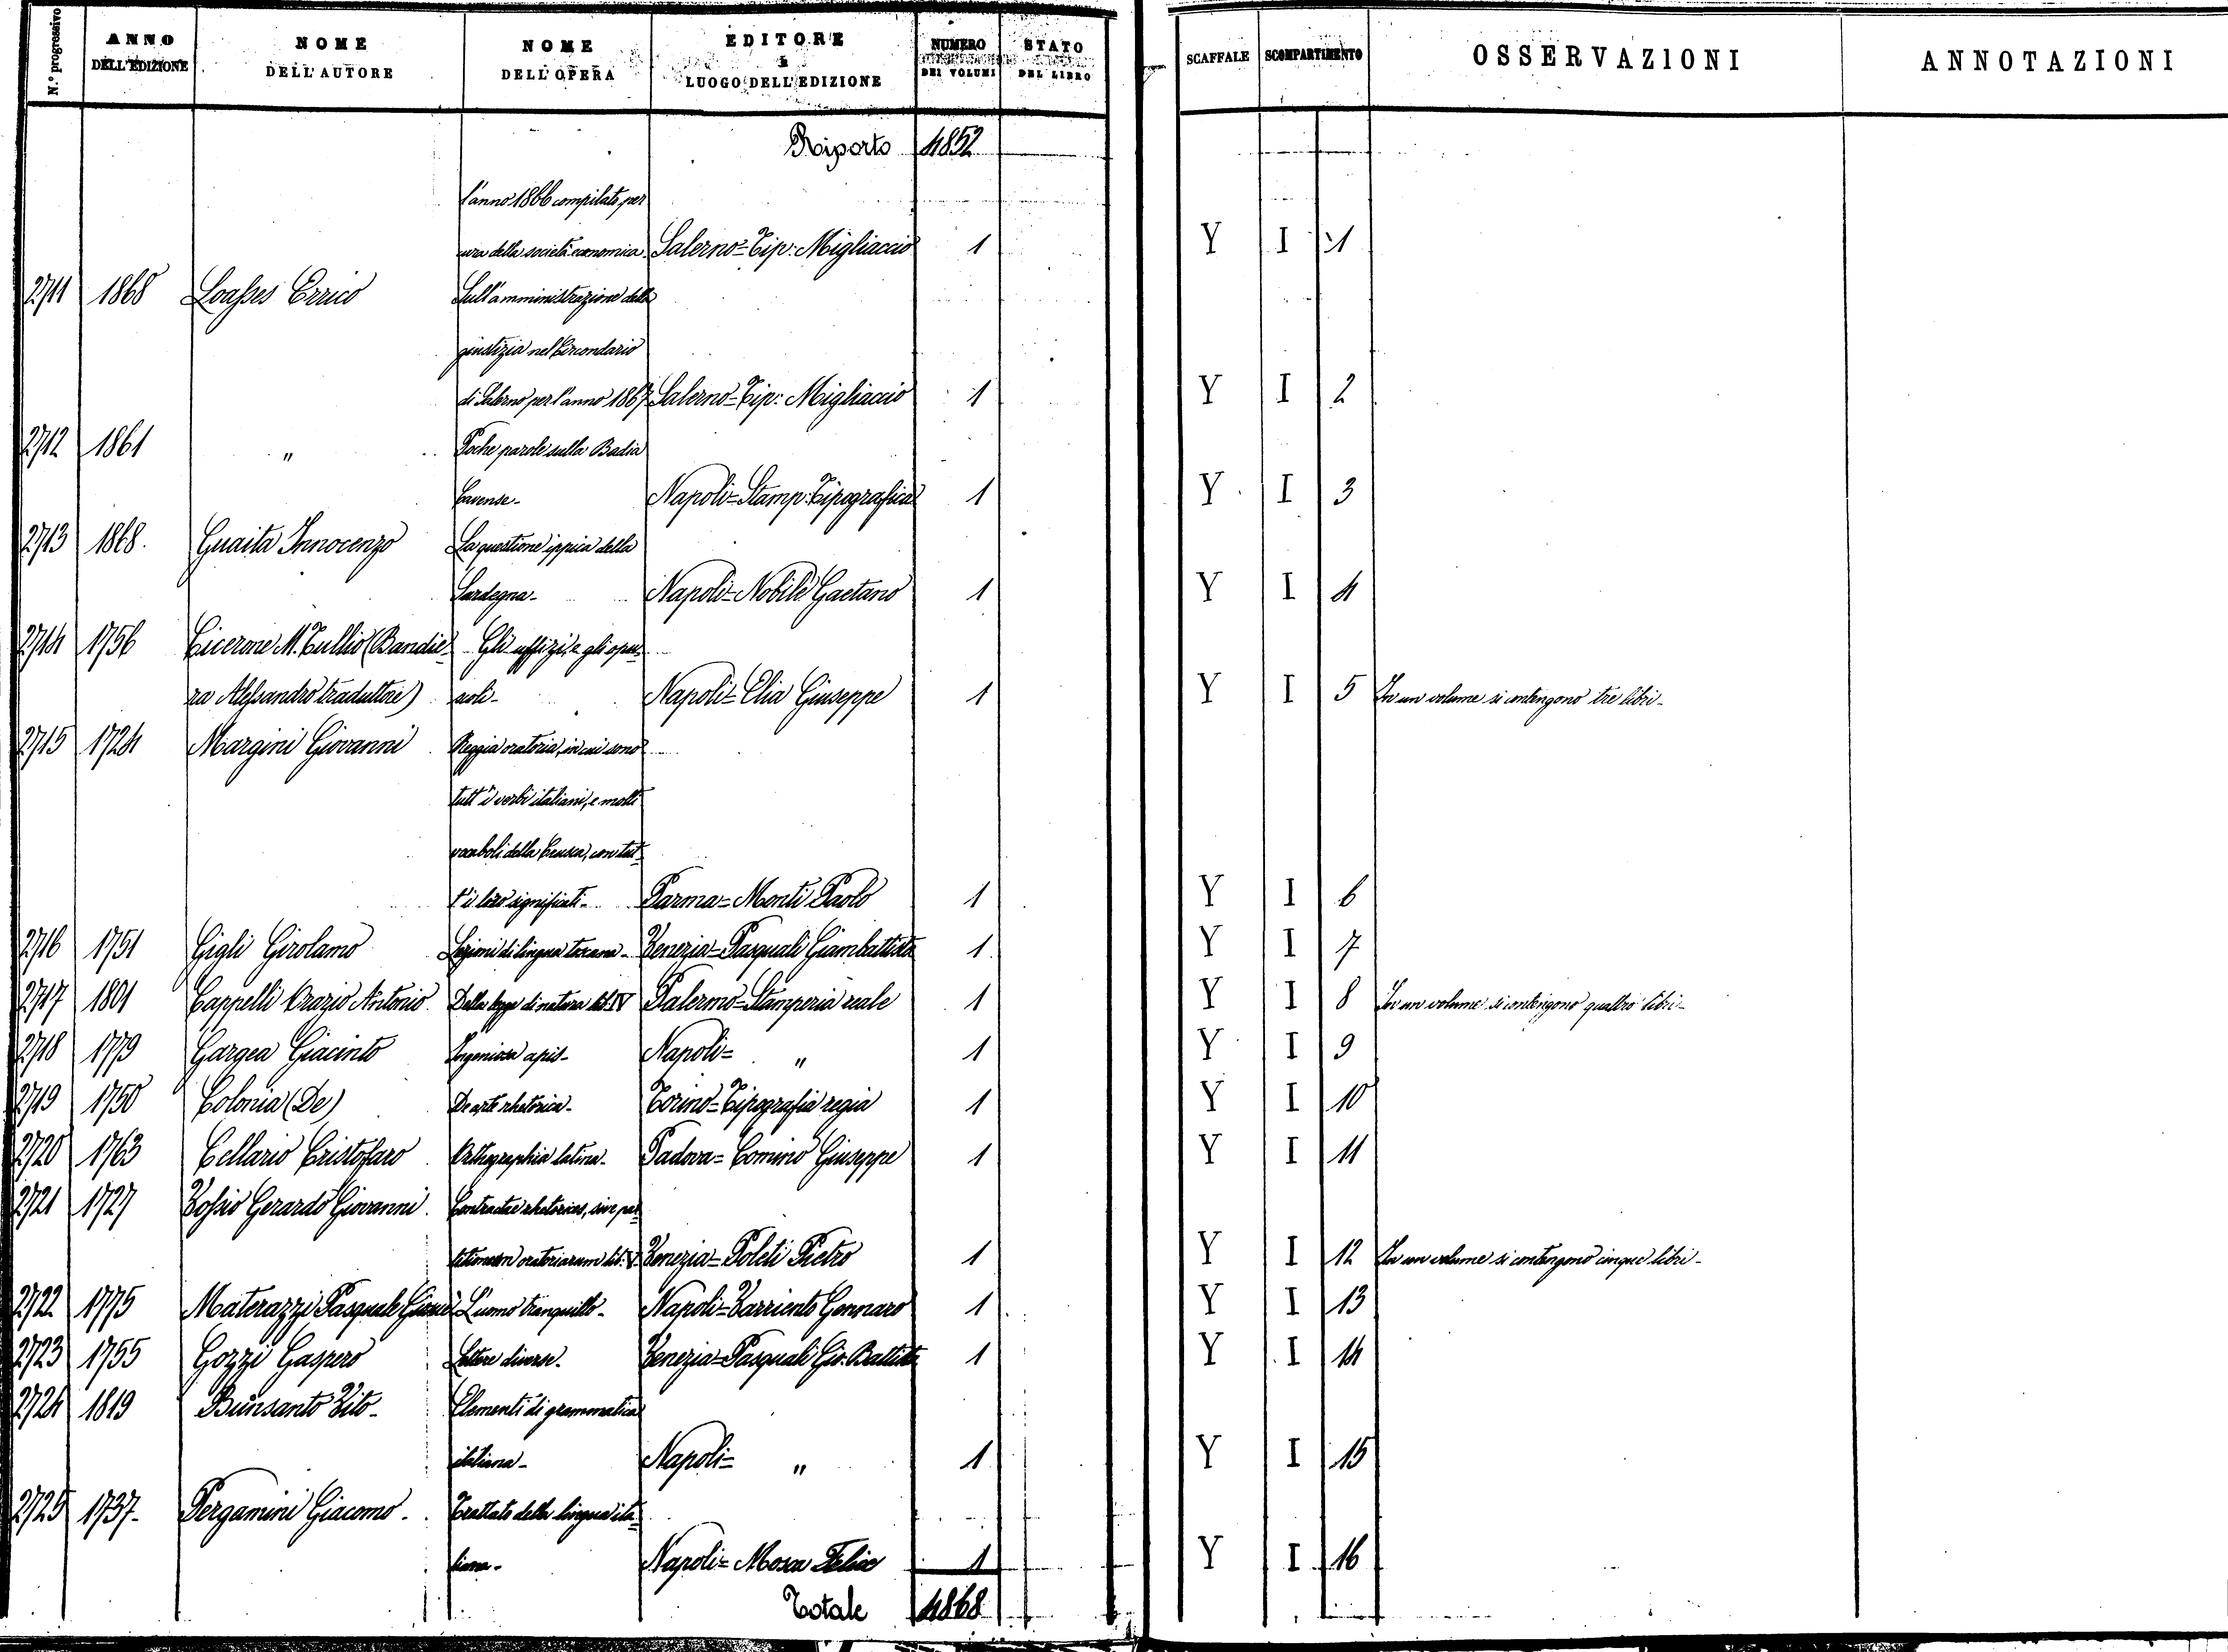 N.° progressivo ANNO DELL'EDIZIONE NOME DELL'AUTORE NOME DELL'OPERA EDITORE E LUOGO DELL'EDIZIONE NUMERO DEI VOLUMI STATO DEL LIBRO SCAFFALE SCOMPARTIMENTO OSSERVAZIONI ANNOTAZIONI
Riporto 4852
l'anno 1866 compilato per
cura della società economica Salerno=Tip: Migliaccio 1 Y I 1
2711 1868 Loasses Errico Sull'amministrazione della
giustizia nel Circondario
di Salerno per l'anno 1867 Salerno=Tip: Migliaccio 1 Y I 2
2712 1861 " Poche parole sulla Badia
Cavense- Napoli=Stamp: Tipografica 1 Y I 3
2713 1868. Guaita Innocenzo La questione ippica della
Sardegna- Napoli=Nobile Gaetano 1 Y I 4
2714 1756 Cicerone M. Tullio (Bandie- Gli uffizi, e gli opu-
ra Alessandro traduttore) scoli- Napoli=Elia Giuseppe 1 Y I 5 In un volume si contengono tre libri-
2715 1724 Margini Giovanni Reggia oratoria, in cui sono
tutt'i verbi italiani, e molti
vocaboli della Crusca, con tut-
t'i loro significati- Parma=Monti Paolo 1 Y I 6
2716 1751 Gigli Girolamo Lezioni di lingua toscana- Venezia=Pasquali Giambattista 1 Y I 7
2717 1801 Cappelli Orazio Antonio Della legge di natura lib. IV Palermo=Stamperia reale 1 Y I 8 In un volume si contengono quattro libri-
2718 1779 Gargea Giacinto Ingeniosa apis- Napoli= " 1 Y I 9
2719 1750 Colonia (De) De arte rhetorica- Torino=Tipografia regia 1 Y I 10
2720 1763 Cellario Cristofaro Orthographia latina- Padova=Comino Giuseppe 1 Y I 11
2721 1727 Vossio Gerardo Giovanni Contractae rhetorices, sive par-
titionum oratoriarum lib. V- Venezia=Poleti Pietro 1 Y I 12 In un volume si contengono cinque libri-
2722 1775 Materazzi Pasquale L'uomo tranquillo- Napoli=Varriento Gennaro 1 Y I 13
2723 1755 Gozzi Gaspero Lettere diverse- Venezia=Pasquali Gio. Battista 1 Y I 14
2724 1819 Bunsanto Vito- Elementi di grammatica
italiana- Napoli= " 1 Y I 15
2725 1737- Pergamini Giacomo Trattato della lingua ita-
liana- Napoli=Mosca Felice 1 Y I 16
Totale 4868